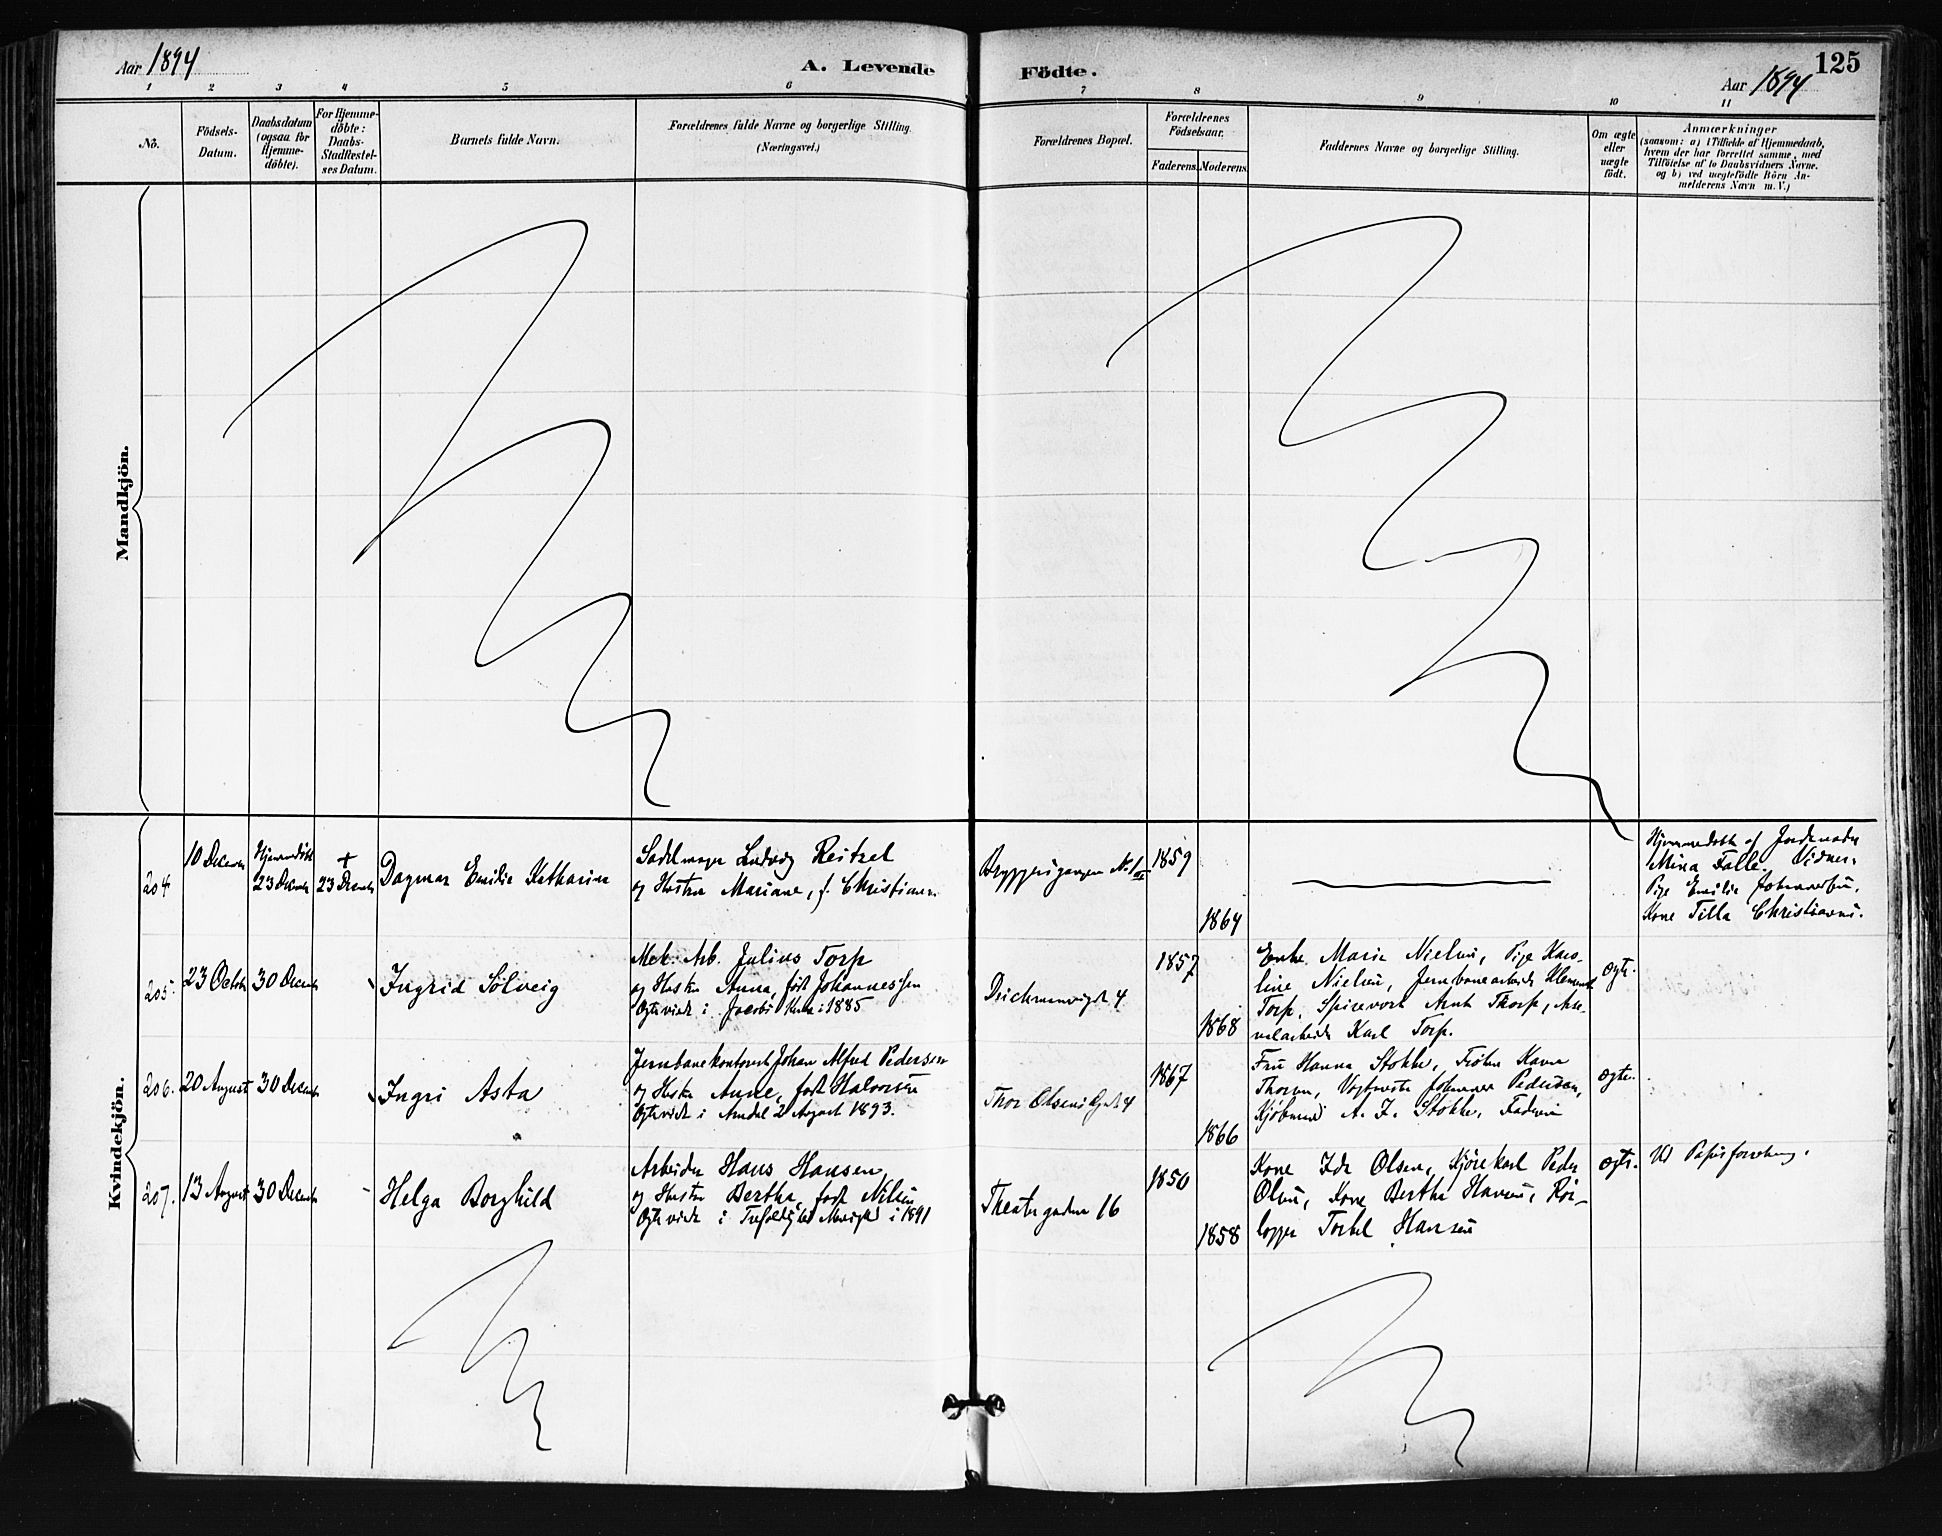 Aar 1894
A. Levende
Födte.
Aar 1894
125
1 2 3 4 5 6 7 8 9 10 11
No.
Födsels-
Datum.
Daabsdatum
(ogsaa for
Hjemme-
döbte).
For Hjemme-
döbte:
Daabs-
Stadfæstel-
ses Datum.
Barnets fulde Navn.
Forældrenes fulde Navne og borgerlige Stilling
(Næringsvei.)
Forældrenes Bopæl.
Forældrenes
Födselsaar.
Faderens. Moderens.
Faddernes Navne og borgerlige Stilling.
Om ægte
eller
uægte
født.
Anmærkninger
(saasom: a) i Tilfælde af Hjemmedaab,
hvem der har forrettet samme, med
Tilföielse af to Daabsvidners Navne.
og b) ved uægtefödte Börn An-
melderens Navn m. V.)
Mandkjön.
Kvindekjön.
204.
10 Decem
Hjemmedöbt
23 Decem
+
23 Decem
Dagmar Emilie Katharina
Sadelmager Ludvig Reitzel
og Hustru Mariane, f. Christiansen
1859
1864
Hjemmedöbt af Jordemoder
Mina Falle. Vidner:
Pige Emilie
Kone Tilla
205.
23 October
30 Decem
Ingrid Sölveig
Mek. Arb. Julius Torp
og Hustru Anna, född Johannessen
Ægteviede i Jacobs Kirke i 1885
4
1857
1868
Enke Marie Nielsen, Pige Karo-
line Nielsen, Jernbanearbeider Klement
Torp, Arnt Thorp,
Karl Torp.
ægte.
206.
20 August
30 Decem
Ingri Asta
Jernbanekontorist Johan Alfred Pedersen
og Hustru Anne, född Halvorsen
Ægteviede i Arendal 2 August 1893.
Thor Olsens Gade 4
1867
1866
Fru Hanna Stokke, Fröken
Pedersen,
Kjöbmand A. Stokke, Faderen
ægte.
207.
13 August
30 Decem
Helga Borghild
Arbeider Hans Hansen
og Hustru Bertha, född Nilsen
Ægteviede i Trefoldighed Menighed i 1891
Theatergaden 16
1850
1858
Kone Ida Olsen, Kjörekarl Peder
Olsen, Kone Bertha Hansen, Rör-
lægger Hansen
ægte.